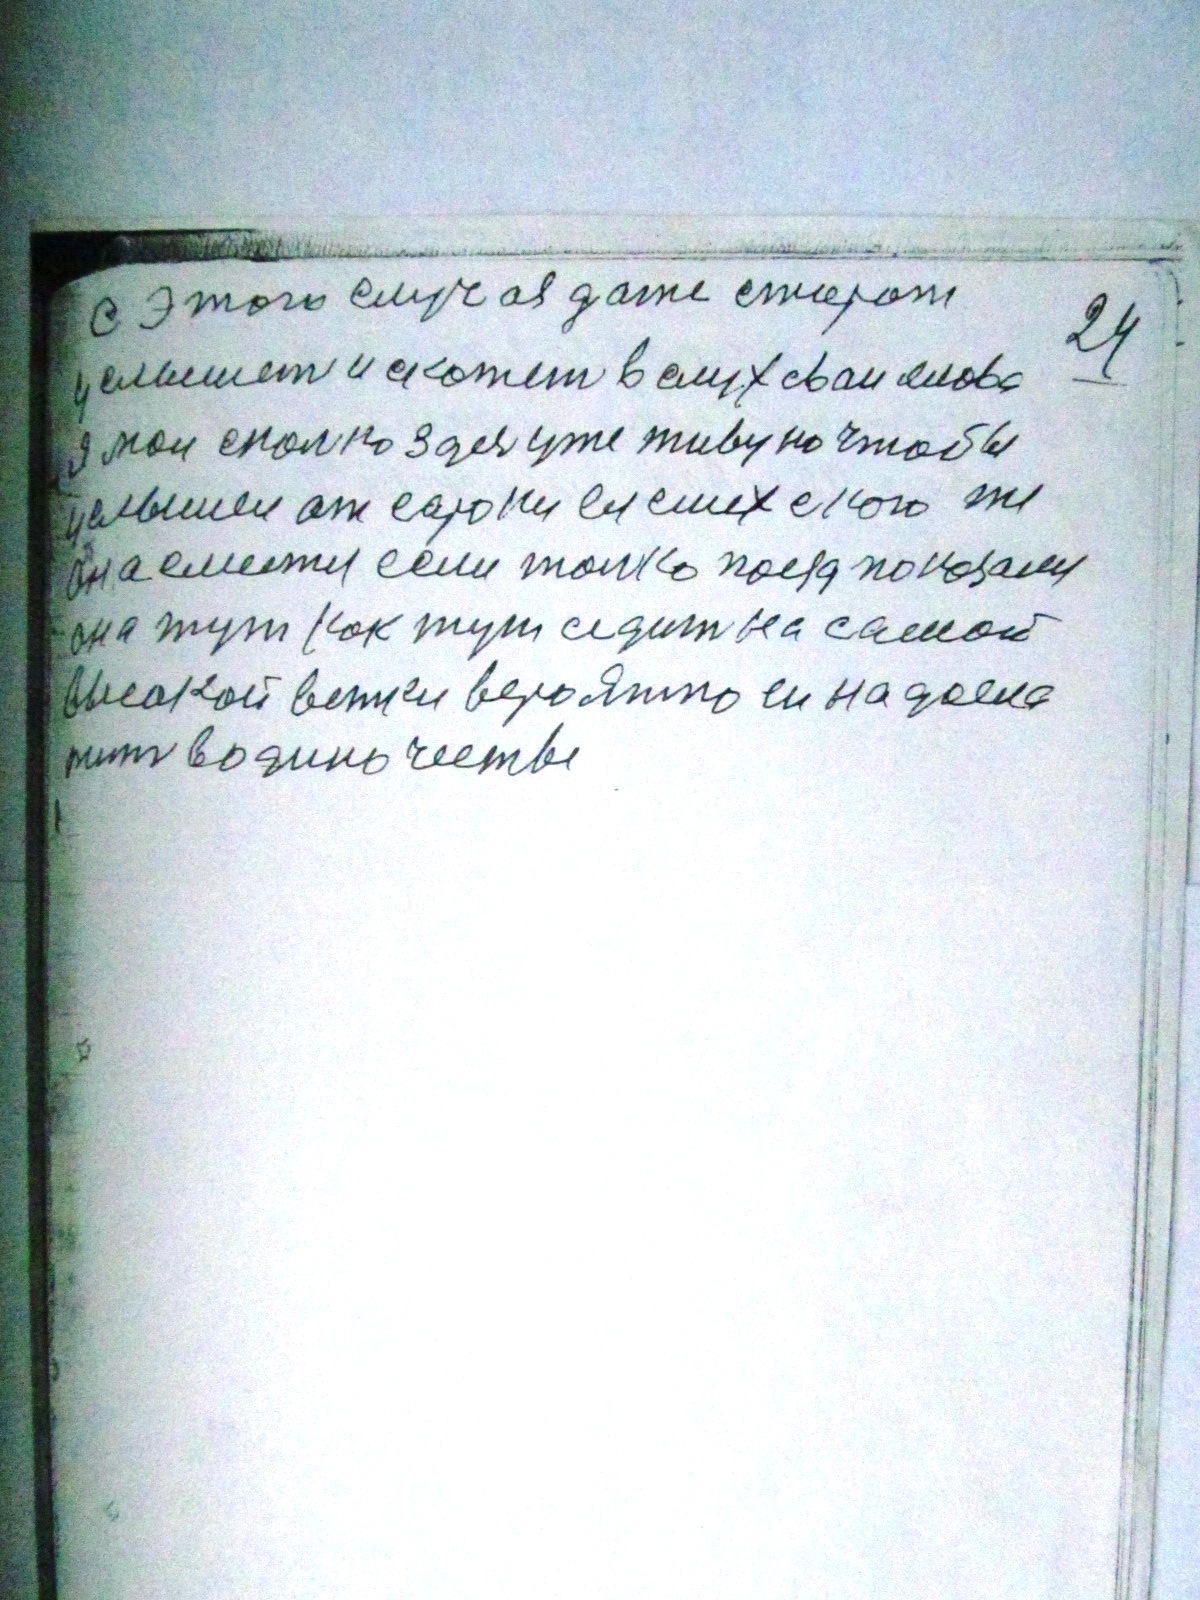 с Этого случая даже сторож
24
услышет и скожет в слух сваи слова
Я мол сколко здея уже живу но чтобы
услышел от сароки ея смех с кого же
она смется если толко поезд показалея
она тут как тут седит на самой
высокой ветки вероятно ей надоела
жит водиночестве